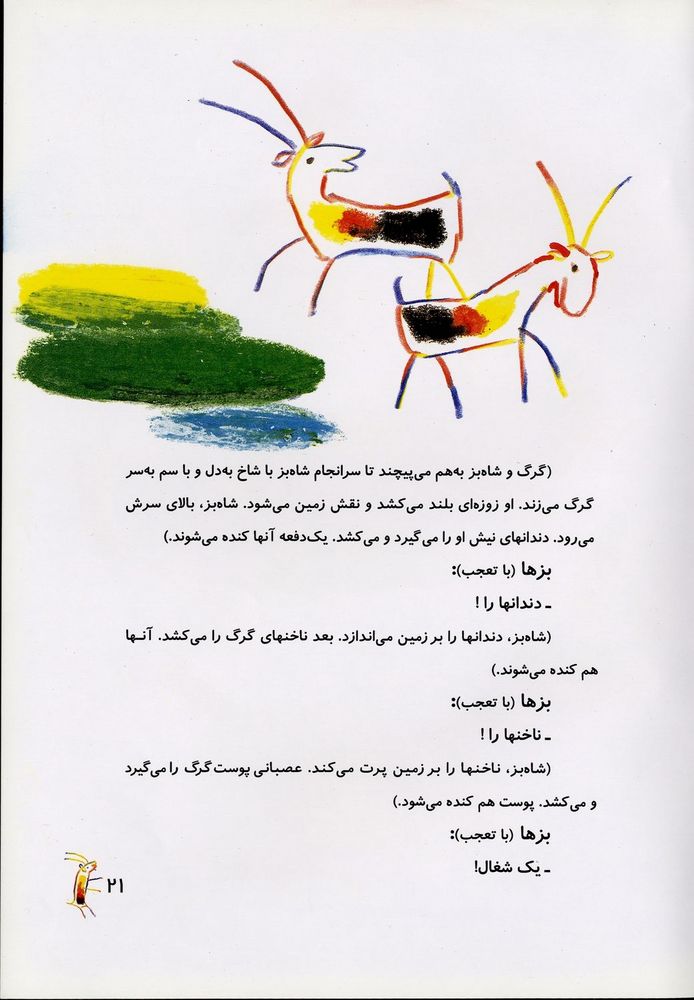 (گرگ و شاه‌بز به‌هم می‌پیچند تا سرانجام شاه‌بز با شاخ به‌دل و با سم به‌سر
گرگ می‌زند. او زوزه‌ای بلند می‌کشد و نقش زمین می‌شود. شاه‌بز، بالای سرش
می‌رود. دندانهای نیش او را می‌گیرد و می‌کشد. یک‌دفعه آنها کنده می‌شوند.)
بزها (با تعجب):
ـ دندانها را !
(شاه‌بز، دندانها را بر زمین می‌اندازد. بعد ناخنهای گرگ را می‌کشد. آنـها
هم کنده می‌شوند.)
بزها (با تعجب):
ـ ناخنها را !
(شاه‌بز، ناخنها را بر زمین پرت می‌کند. عصبانی پوست گرگ را می‌گیرد
و می‌کشد. پوست هم کنده می‌شود.)
بزها (با تعجب):
ـ یک شغال!
۲۱